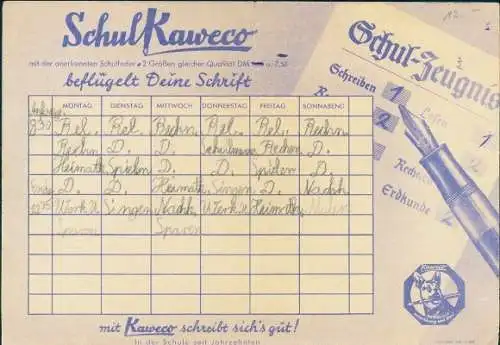 12.-
Schul Kaweco
mit der anerkannten Schulfeder • 2 Größen gleicher Qualität DM u. 7,50
beflügelt Deine Schrift
Schul-Zeugnis
Schreiben 1
Lesen 1
2
Rechnen
Erdkunde 2
MONTAG DIENSTAG MITTWOCH DONNERSTAG FREITAG SONNABEND
8 30 Rel. Rel. Rechn. Rel. Rel. Rechn
Rechn D. D. Rechen D.
Heimatk Spielen D. D. Spielen D.
Ende D. D. Heimatk Singen D. Nadh
Werk U. Singen Nadh. Werk U. Heimatk.
Sparen Sparen
Kaweco
mit Kaweco schreibt sich's gut!
In der Schule seit Jahrzehnten